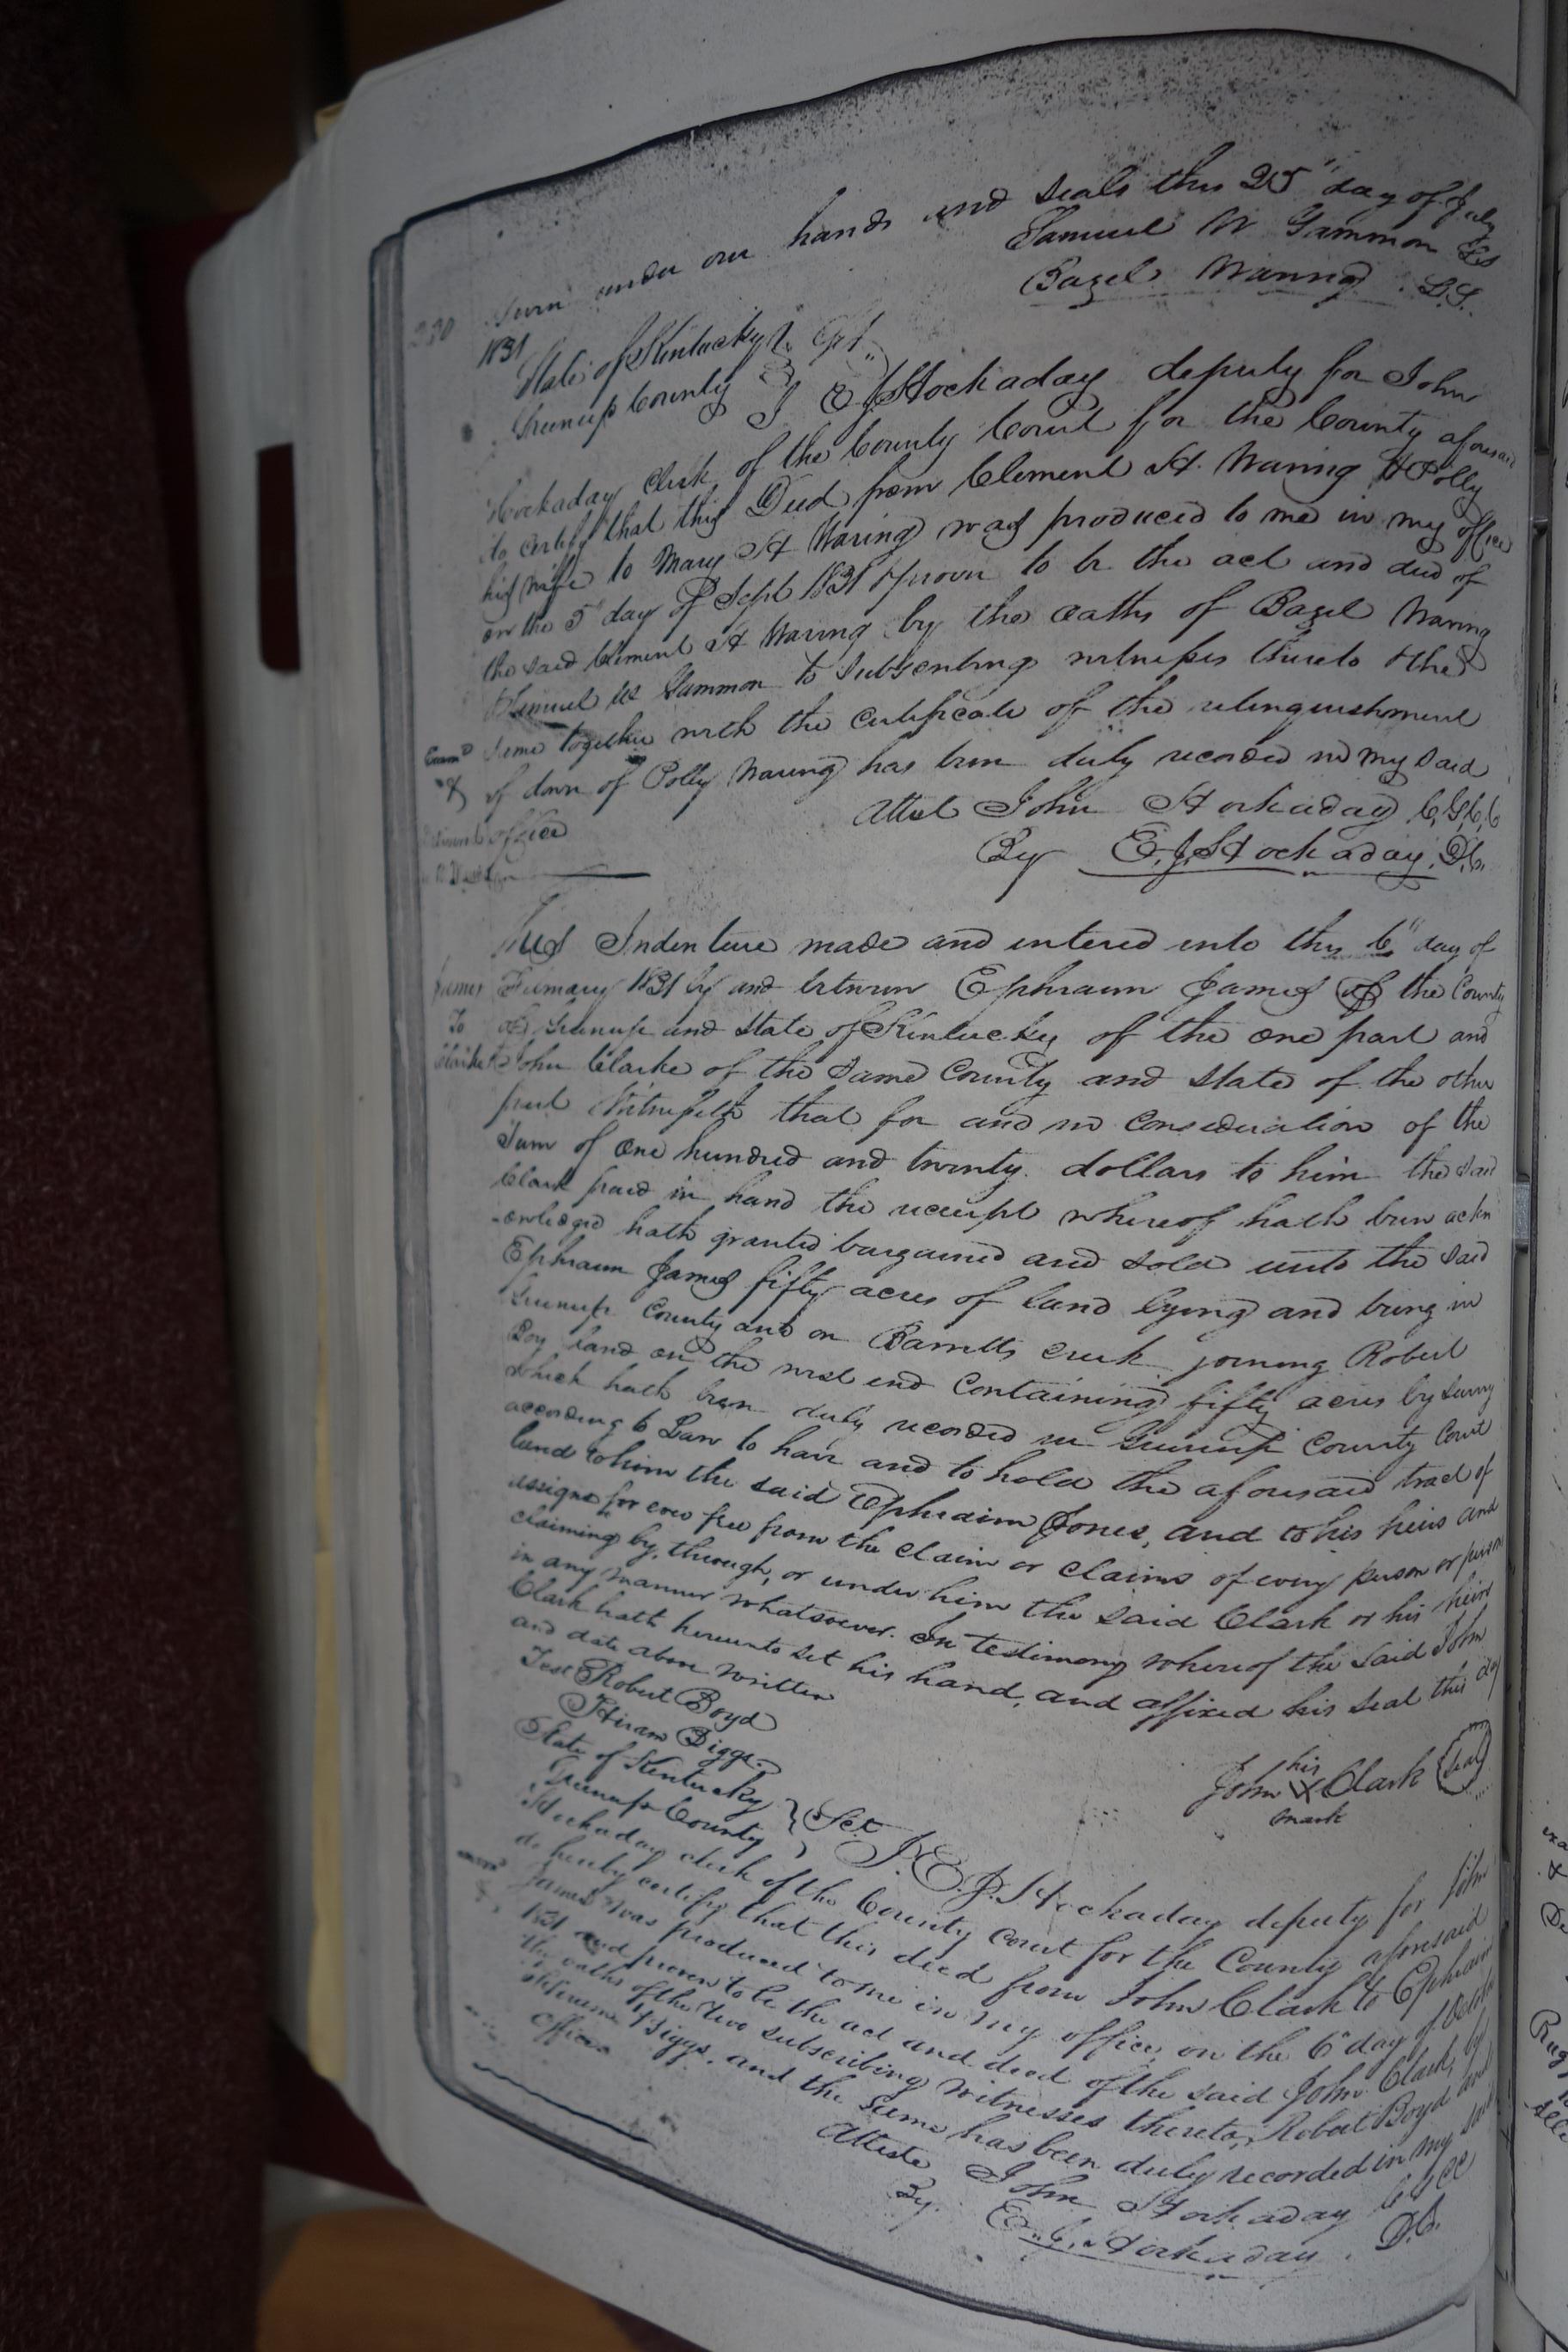 under our hands and seals this 25" day of July
1831
Samuel W Gammon LS
Bazel Waring L.S.
230
State of Kentucky
Greenup County Sct. I E J Hockaday deputy for John
Hockaday Clerk of the County Court for the County aforesaid
do certify that this Deed from Clement H. Waring & Polly
his wife to Mary H Waring was produced to me in my office
on the 5" day of Sept 1831 & proven to be the act and deed of
the said Clement H Waring by the oaths of Bazel Waring
& Samuel W Gammon to Subscribing witnesses thereto & the
Exam'd Same together with the certificate of the relinquishment
of dower of Polly Waring has been duly recorded in my said
office
Attest John Hockaday C,G,C,C
By E.J. Hockaday, D.C.
This Indenture made and entered into this 6" day of
James 1831 by and between Ephraim James of the County
To of Greenup and State of Kentucky of the one part and
Clarke John Clarke of the Same County and State of the other
part Witnesseth that for and in Consideration of the
Sum of One hundred and twenty dollars to him the said
Clark paid in hand the receipt whereof hath been ackn
-owledged hath granted bargained and sold unto the said
Ephraim James fifty acres of land lying and being in
Greenup County and on Barretts creek joining Robert
Boy land on the west end Containing fifty acres by Survy
which hath been duly recorded in Greenup County Court
according to Law to have and to hold the aforesaid tract of
land to him the said Ephraim Jones, and to his heirs and
assigns for ever free from the claim or claims of every person or person
claiming by, through, or under him the said Clark or his heirs
in any manner whatsoever. In testimony whereof the said John
Clark hath hereunto set his hand, and affixed his seal this day
and date above written
Test Robert Boyd
Hiram Biggs
John his X mark Clark Seal
State of Kentucky
Greenup County Sct I. E.J. Hockaday deputy for John
Hockaday clerk of the County court for the County aforesaid
do hereby certify that this deed from John Clark to Ephraim
James was produced to me in my office on the 6" day of
1831 and proven to be the act and deed of the said John Clark, by
the oaths of the two subscribing witnesses thereto, Robert Boyd and
Biggs, and the same has been duly recorded in my said
office.
Atteste John Hockaday C G C C
By. E. J. Hockaday. D.C.